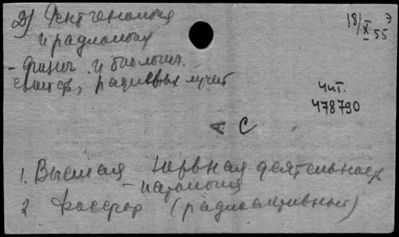 2) Рентгенология
18/X 55 Э
и радиология
- физич. и биологич.
свойств, радиевых лучей
Чит.
478790
А С
1. Высшая нервная деятельность
- патология
2 Фосфор (радиоактивный)